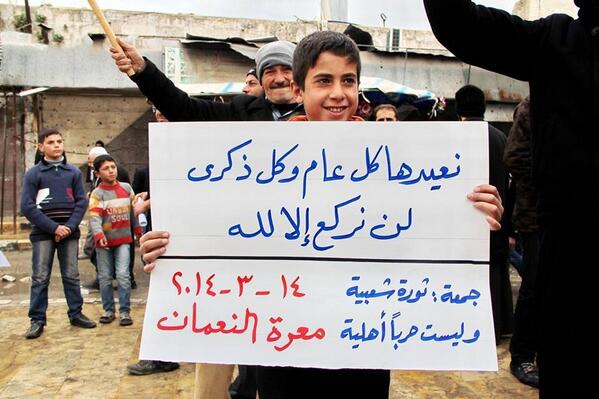 نعيدها كل عام وكل ذكرى
لن نركع إلا لله
جمعة : ثورة شعبية
وليست حرباً أهلية
١٤ - ٣ - ٢٠١٤
معرة النعمان